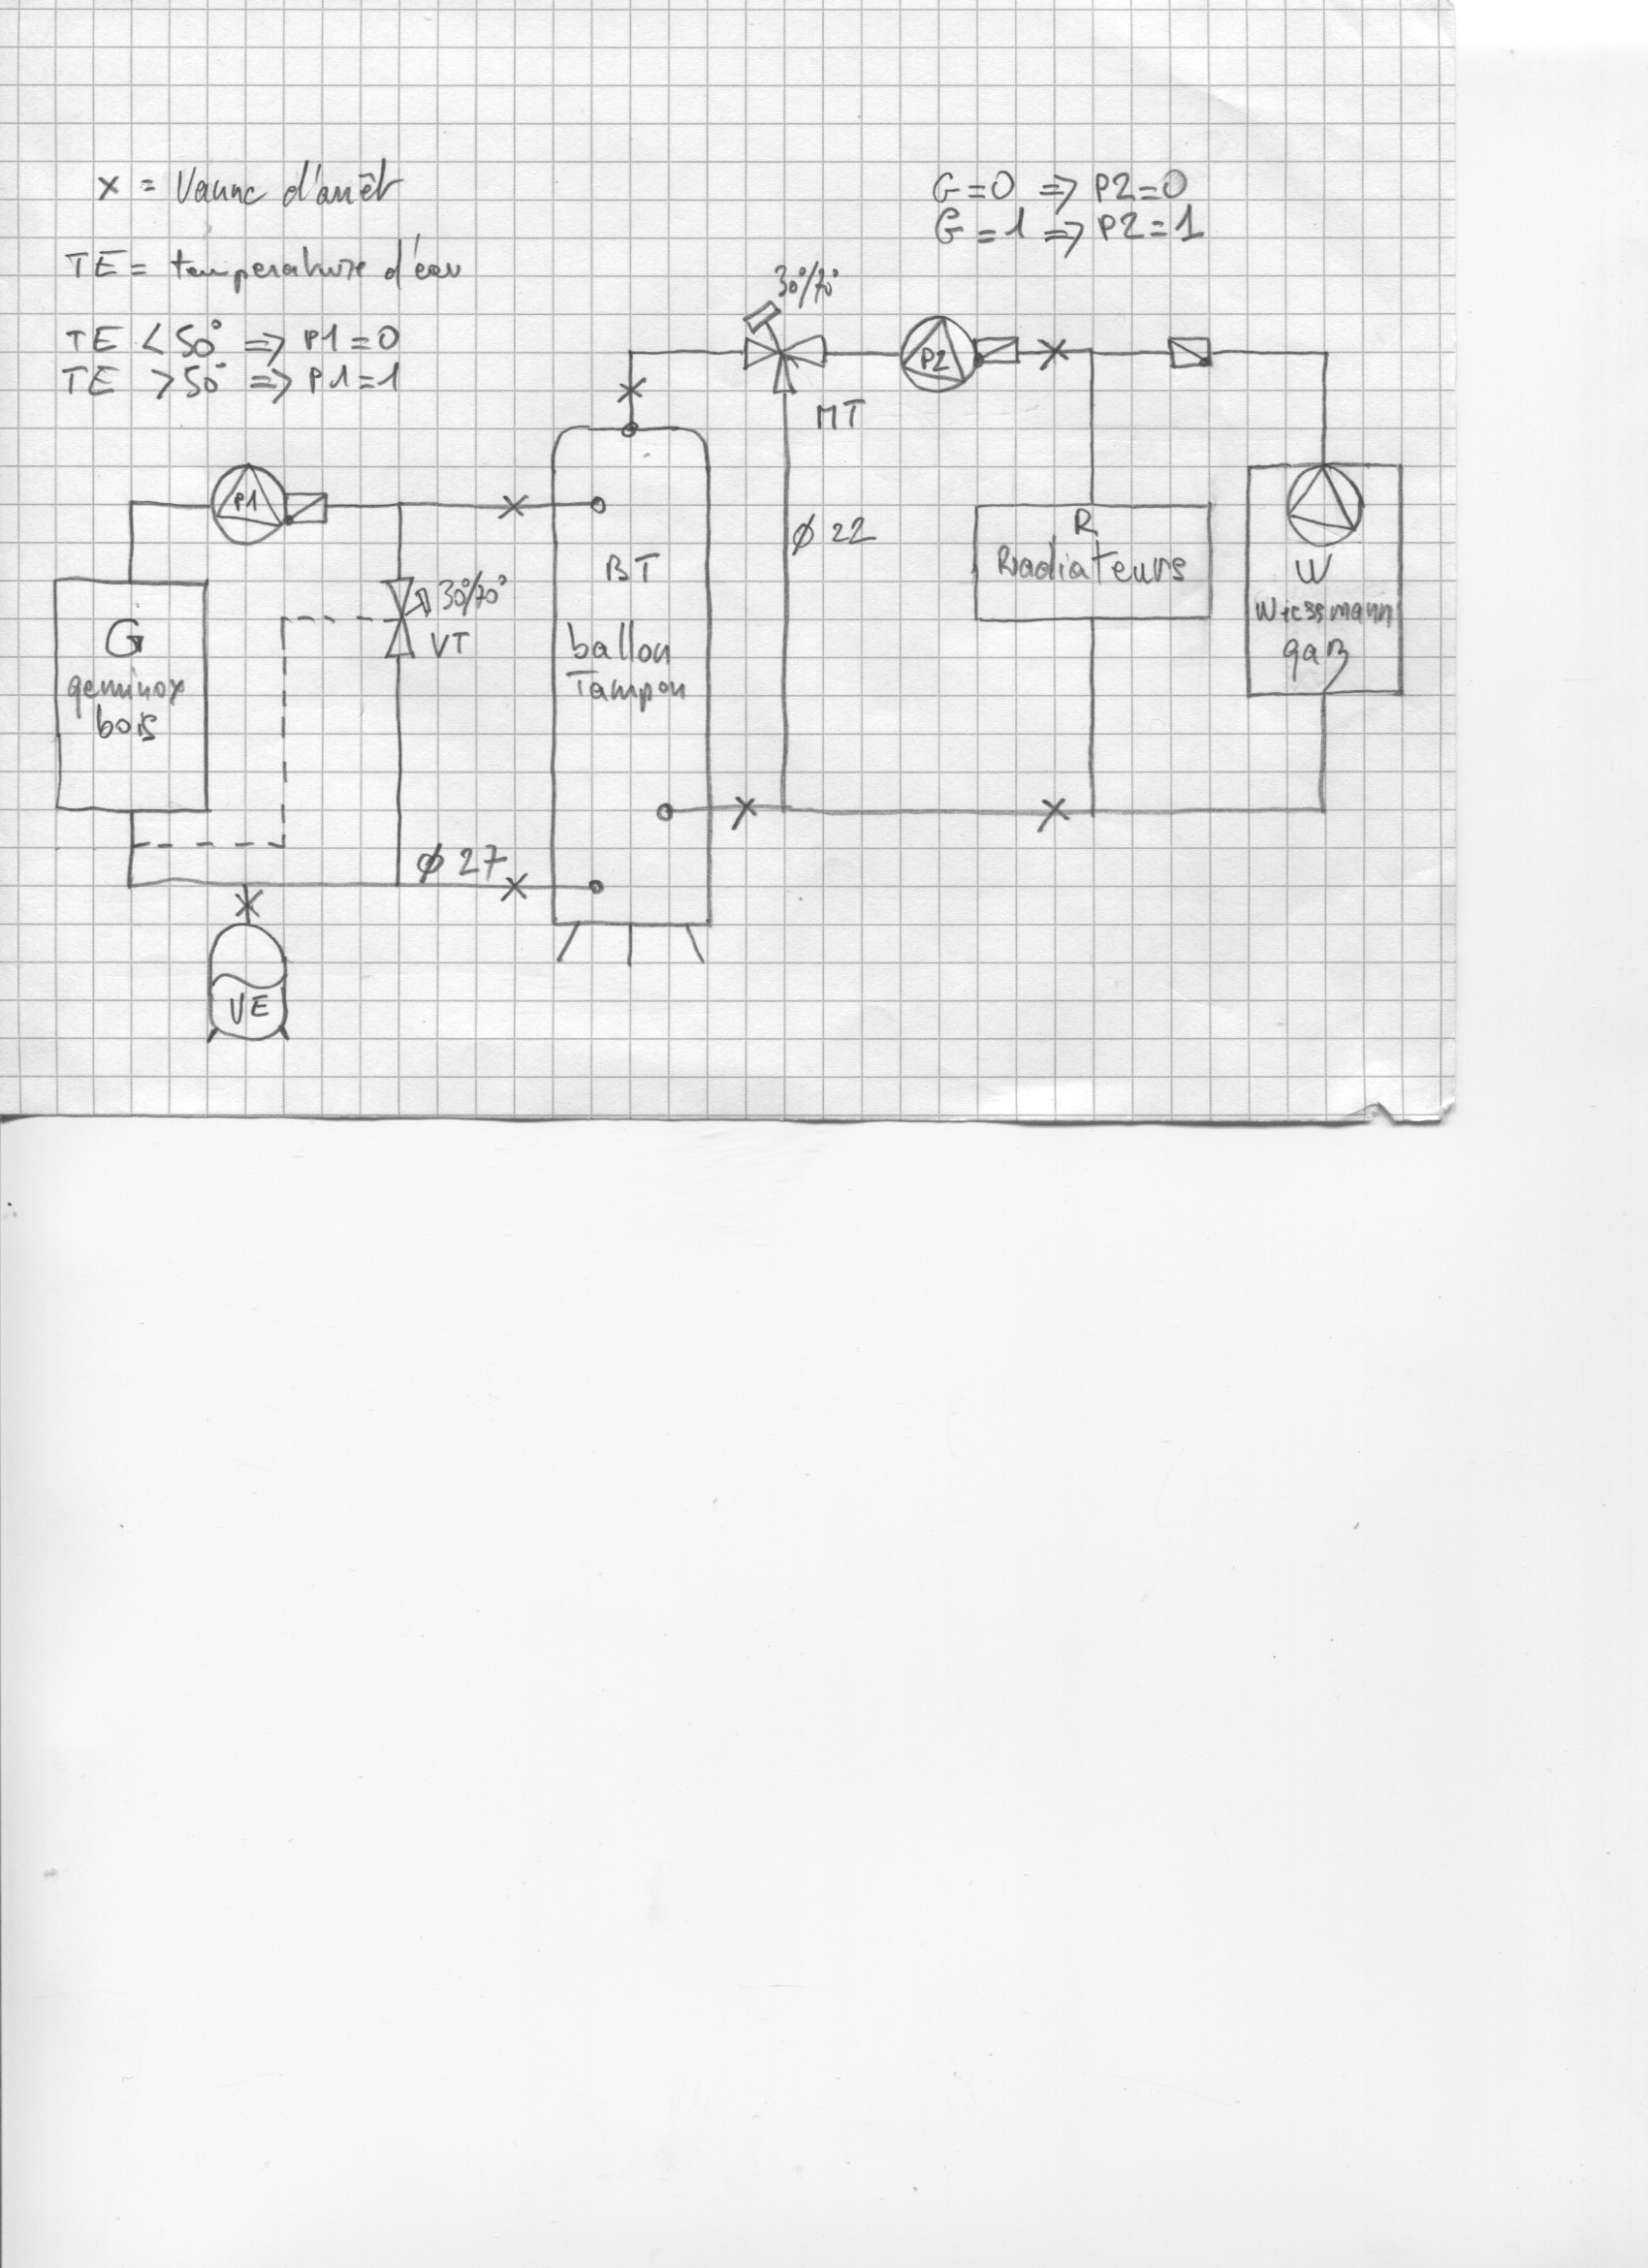 x = Vanne d'arrêt
TE = temperature d'eau
TE < 50° => P1 = 0
TE > 50° => P1 = 1
G = 0 => P2 = 0
G = 1 => P2 = 1
30°/70°
P2
MT
P1
ø 22
R
Radiateurs
W
Wiessmann
gaz
BT
ballon
Tampon
30°/70°
VT
G
geminox
bois
ø 27
VE